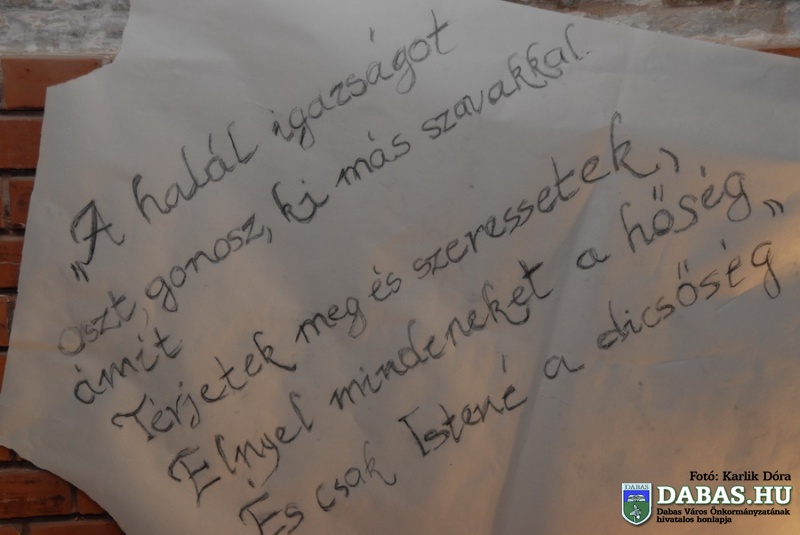 „A halál igazságot
oszt, gonosz, ki más szavakkal
ámít
Térjetek meg és szeressetek,
Elnyel mindeneket a hőség,,
És csak Istené a dicsőség
Fotó: Karlik Dóra
DABAS
DABAS.HU
Dabas Város Önkormányzatának
hivatalos honlapja